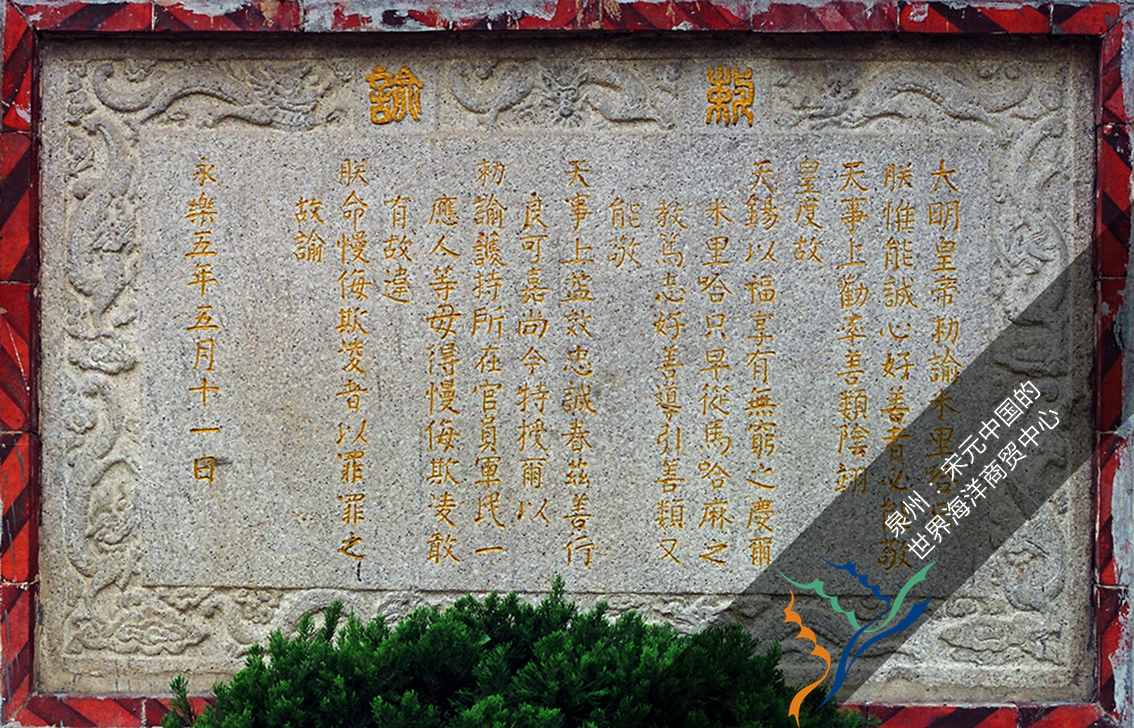 敕諭
大明皇帝勅諭米里哈只
朕惟能誠心好善者必能敬
天事上勸率善類陰翊
皇度故
天錫以福享有無窮之慶爾
米里哈只早從馬哈麻之
教篤志好善導引善類又
能敬
天事上益效忠誠眷茲善行
良可嘉尚今特授爾以
勅諭護持所在官員軍民一
應人等毋得慢侮欺凌敢
有故違
朕命慢侮欺凌者以罪罪之
故諭
永樂五年五月十一日
泉州：宋元中国的
世界海洋商贸中心